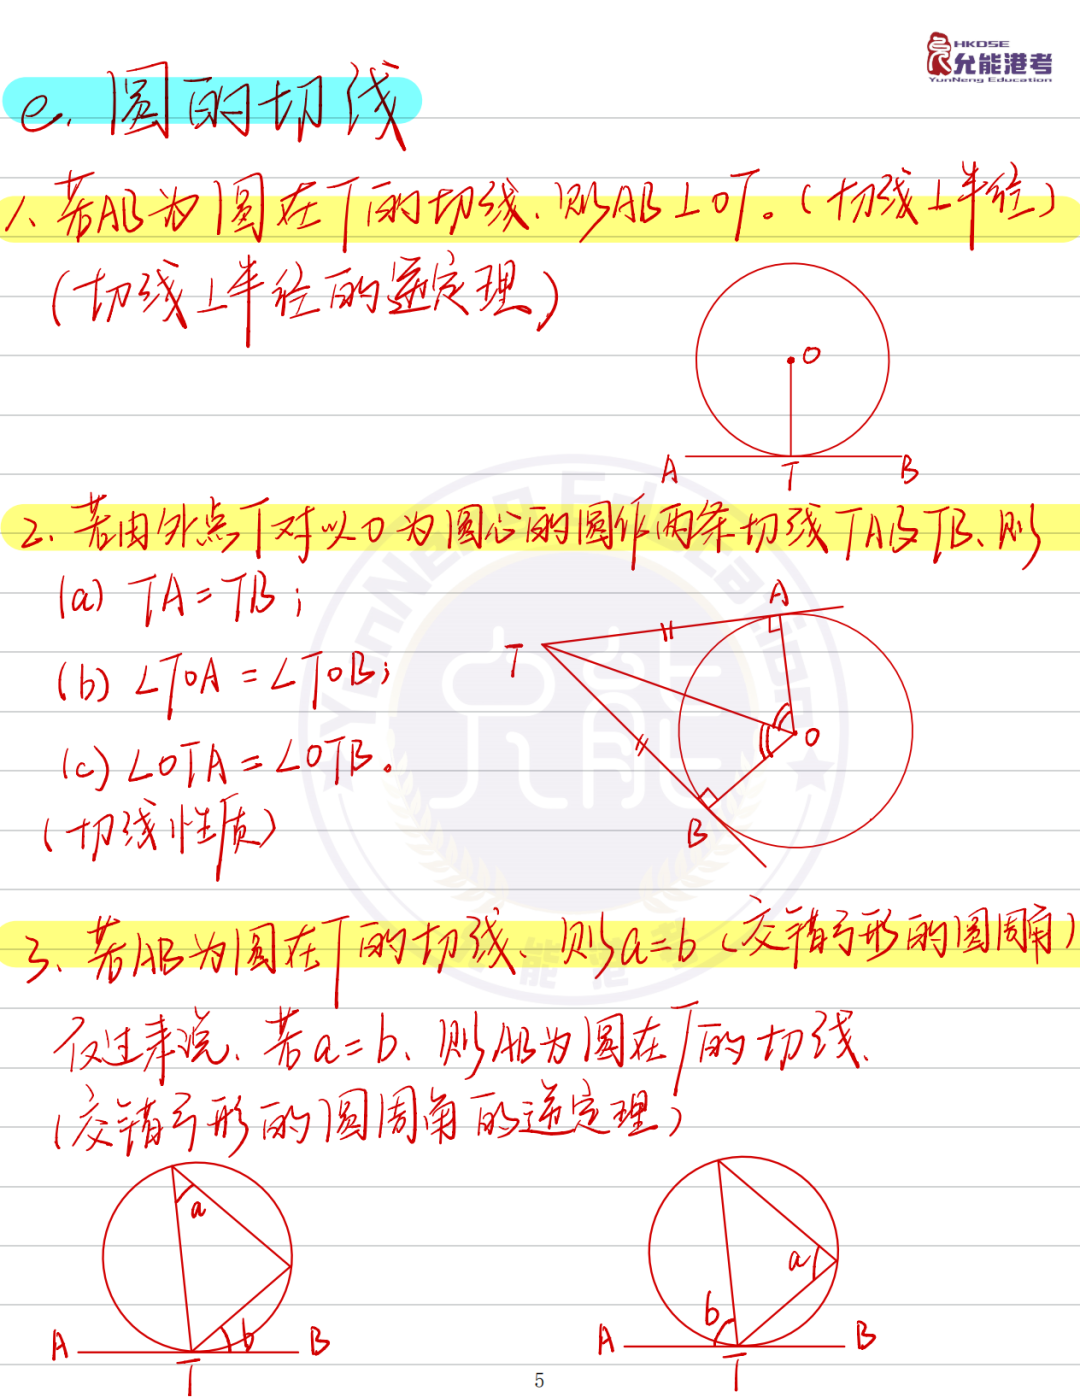 HKDSE
允能港考
YunNeng Education
e. 圆的切线
1、若AB为圆在T的切线、则AB⊥OT。(切线⊥半径)
(切线⊥半径的逆定理)
O
A T B
2、若由外点T对以O为圆心的圆作两条切线TA及TB、则
(a) TA=TB;
(b) ∠TOA=∠TOB;
(c) ∠OTA=∠OTB。
(切线性质)
A
T
O
B
3、若AB为圆在T的切线、则a=b(交错弓形的圆周角)
反过来说、若a=b、则AB为圆在T的切线、
(交错弓形的圆周角的逆定理)
a
b
A T B
a
b
A T B
YunNeng Education
允能
允能港考
5